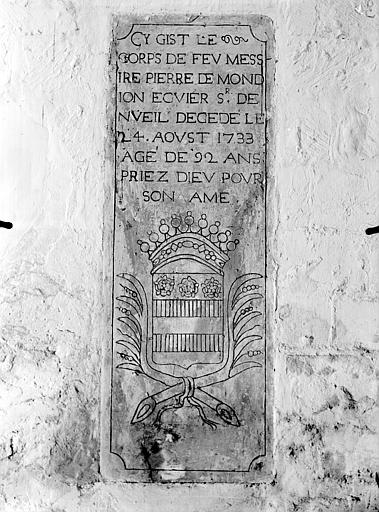 CY GIST LE
CORPS DE FEV MESS
IRE PIERRE DE MOND
ION ECVIER S.R DE
NVEIL DECEDÉ LE
24. AOVST 1733
AGÉ DE 92 ANS
PRIEZ DIEV POVR
SON AME.